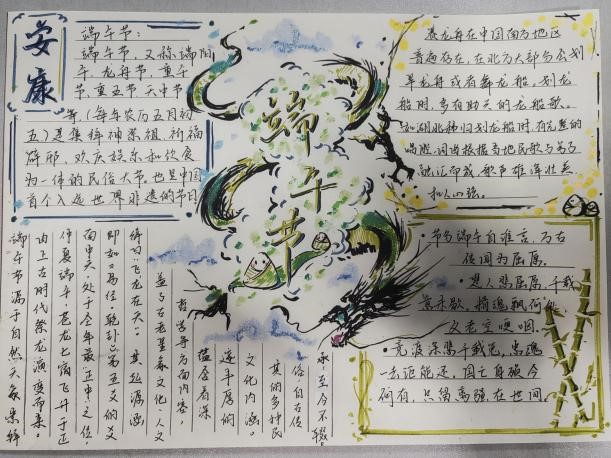 安康
端午节：
端午节，又称端阳
午、龙舟节、重午
节、重五节、天中节
等，(每年农历五月初
五)是集拜神祭祖、祈福
辟邪、欢庆娱乐和饮食
为一体的民俗大节也是中国
首个入选世界非遗的节日
端午节
赛龙舟在中国南方地区
普遍存在，在北方大部分会划
旱龙舟或者舞龙船，划龙
船时，多有助兴的龙船歌。
如湖北秭归划龙船时，有完整的
唱腔，词曲根据当地民歌与号子
融汇而成，歌声雄浑壮美
扣人心弦。
节分端午自谁言，万古
传闻为屈原。
楚人悲屈原，千载
意未歇，精魂飘何处
父老空哽咽。
竞渡深悲千载冤，忠魂
一去讵能还，国亡身殒今
何有，只留离骚在世间
端午节源于自然天象崇拜
由上古时代祭龙演变而来。
仲夏端午，苍龙七宿飞升于正
南中天，处于全年最正中之位，
即如《易经·乾卦》第五爻的爻
辞曰："飞龙在天"。其起源涵
盖了古老星象文化、人文
哲学等方面内容，
蕴含着深
邃丰厚的
文化内涵。
其的多种民
俗，自古传
承，至今不辍。